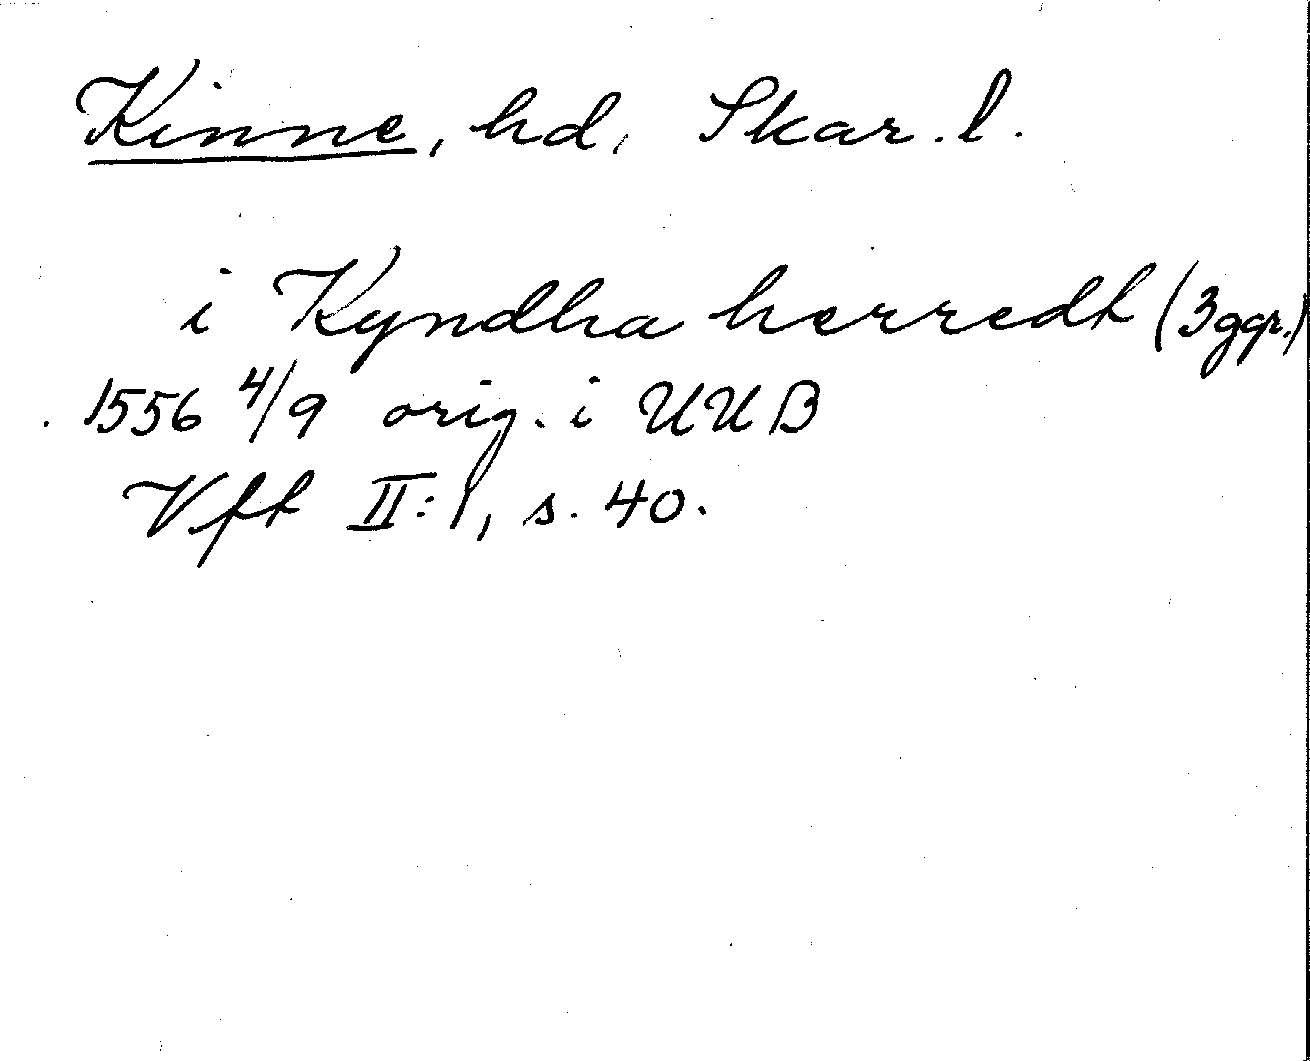 Kinne, hd, Skar. l.
i Kyndha herredt (3 ggr.)
1556 4/9 orig. i UUB
Vft II:1, s. 40.